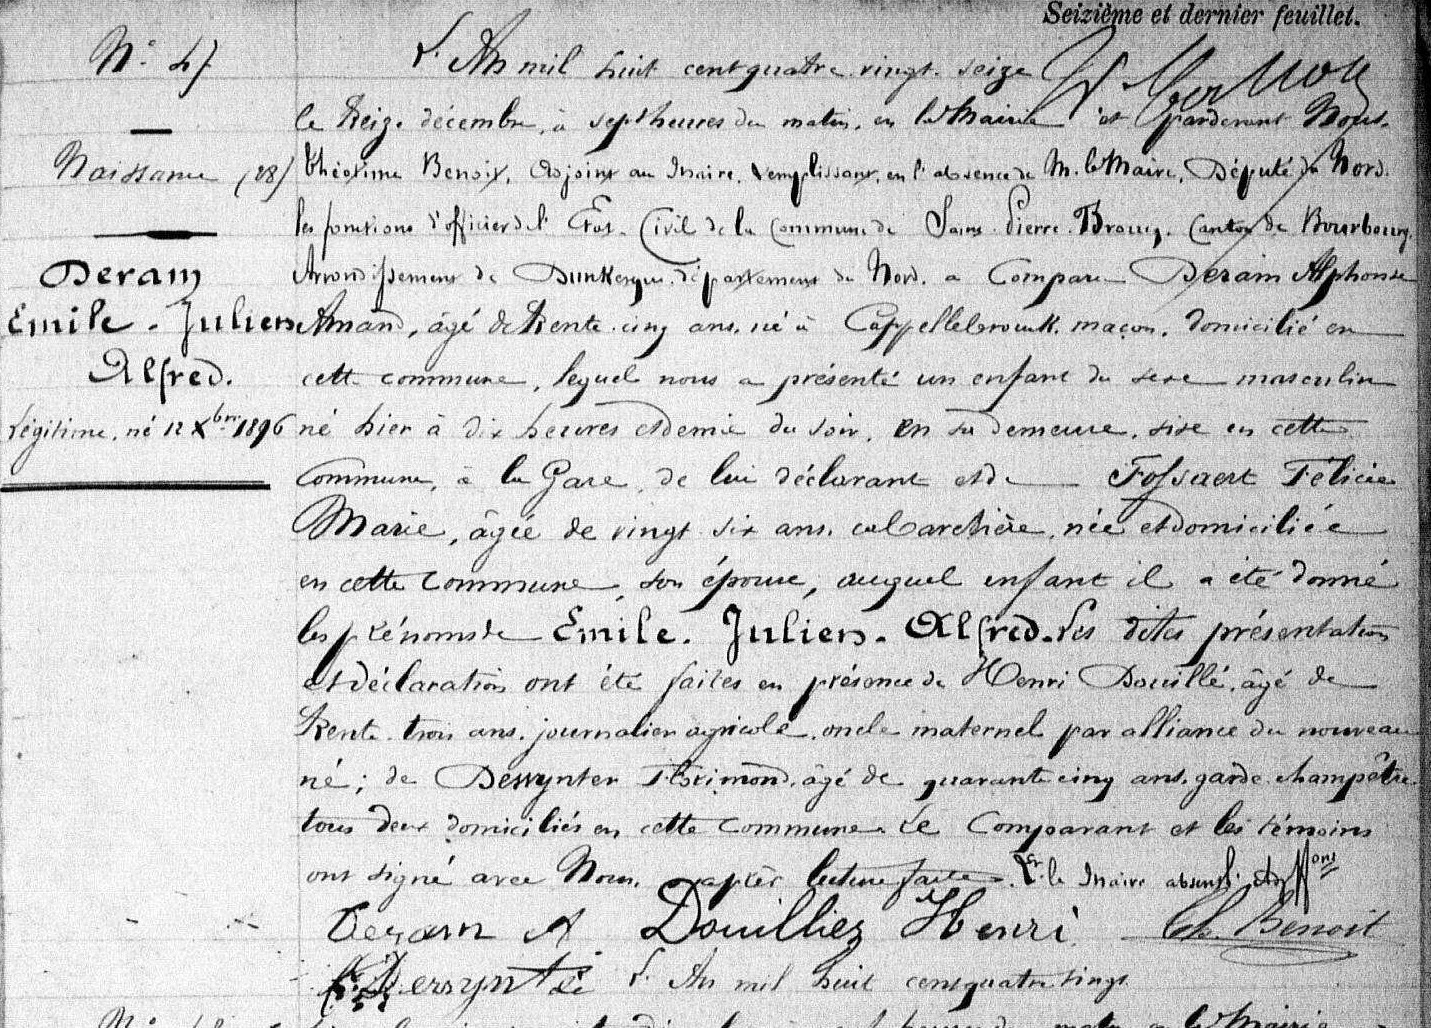 Seizième et dernier feuillet.
N° 47
L'An mil huit cent quatre vingt. seize
le treize décembre, à sept heures du matin, en la Mairie et pardevant Nous.
Naissance (28)
Théotime Benoit, Adjoint au Maire, remplissant, en l'absence de M. le Maire, Député du Nord.
les fonctions d'officier de l'Etat-Civil de la Commune de Saint-Pierre-Brouck, Canton de Bourbourg,
Deram
Emile. Julien
Alfred.
légitime, né 12 Xbre 1896
Arrondissement de Dunkerque, département du Nord, a Comparu Deram Alphonse
Amand, âgé de trente-cinq ans, né à Cappellebrouck, maçon, domicilié en
cette commune, lequel nous a présenté un enfant du sexe masculin
né hier à dix heures et demie du soir, en sa demeure, sise en cette
Commune, à la Gare, de lui déclarant et de Fossaert Félicie
Marie, âgée de vingt-six ans, cabaretière, née et domiciliée
en cette Commune, son épouse, auquel enfant il a été donné
les prénoms de Emile. Julien. Alfred. Les dites présentation
et déclaration ont été faites en présence de Henri Douillé, âgé de
trente-trois ans, journalier agricole, oncle maternel par alliance du nouveau
né; de âgé de quarante cinq ans, garde-champêtre
tous deux domiciliés en cette Commune. Le Comparant et les témoins
ont signé avec Nous, après lecture faite. Pr. le Maire absent:
Deram A Douilliez Henri Th. Benoit
L'An mil huit cent quatre vingt